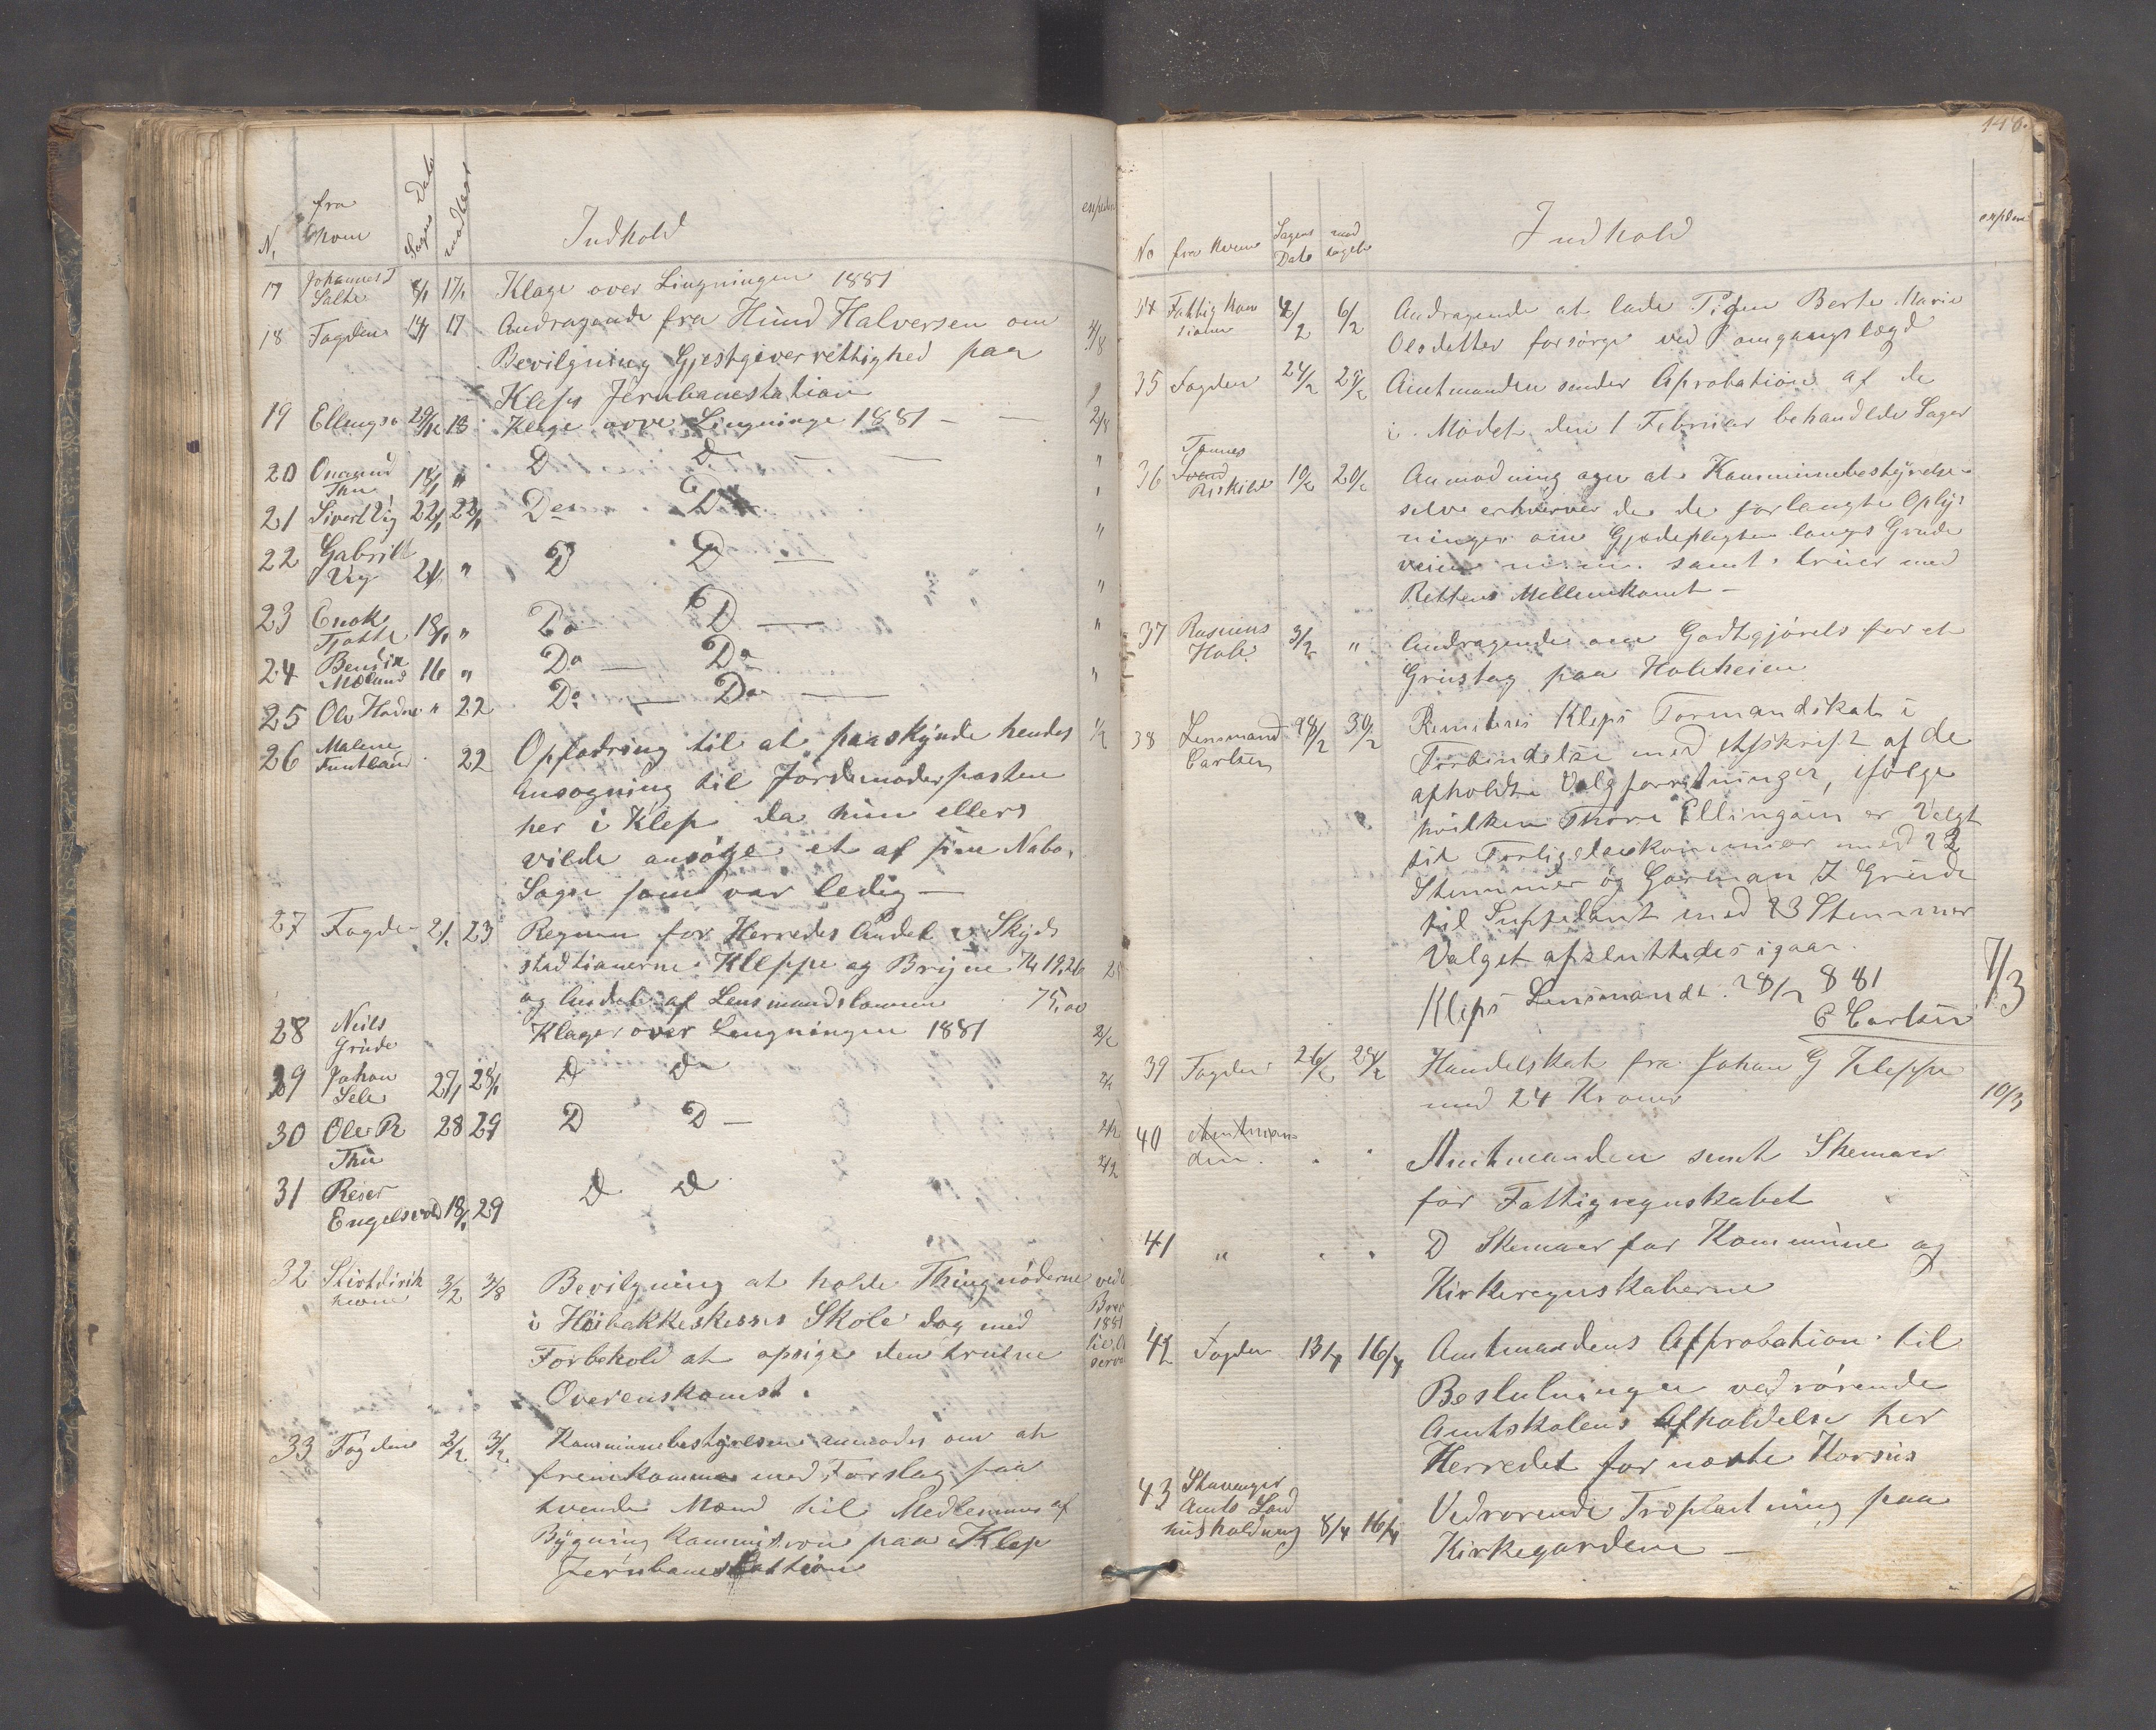 N. fra hvem Sagens Date modtaget Indhold exped
17 Johannes T Salte 8/1 17/1 Klage over Ligningen 1881
18 Fogden 14/1 17 Andragende fra Hund Halversen om 2/8
Bevilgning Gjestgiverrettighed paa
Kleps Jernbanestation
19 Ellingsø 29/12 18 Klage over Ligninge 1881 — — 2/8
20 Onarmd Thu 18/1 " D D — — "
21 Sivert Vig 22/1 22/1 Do D
22 Gabriel Vig 21/1 " D D — "
23 Enok Tjøtta 18/1 " Do D — "
24 Bendik Mæland 16 " Do — Do "
25 Ole Hodne " 22 Do — Do —
26 Malene Tuntland 22 Opfodring til at paaskynde hendes
Ansøgning til Jordemoderposten
her i Klep da hun ellers
vilde ansøge et af sine Nabo
Sogn som var ledig —
27 Fogden 21/1 23 Regnin for Herredes Andel i Skyds
stadtionerne Kleppe og Bryne Kr 19,26
og Andel af Lensmandslønnen 75,00
28 Neils Grude Klager over Lingningen 1881 2/2
29 Johan Sele 27/1 28/1 D Do 2/2
30 Ole R Thu 28 29 D D — 2/2
31 Reier Engelsvold 18/1 29 D D 2/2
32 Stiftdirik 3/2 3/8 Bevilgning at holde Thingmøderne
i Høibakkeskesses Skole dog med
Forbehold at opsige den trufne
Overenskomst.
33 Fogden 2/2 3/2 Kommunebestyrelsen anmodes om at
fremkomme med Forslag paa
tvende Mænd til Medlemmer af
Bygning kommission paa Klep
Jernbanestation
148.
No fra hvem Sagens Date mod taget Indhold expedere
34 Fattig kom sionen 4/2 6/2 Andragende at lade Pigen Berte Marie
Olsdatter forsørge ved omgangslægd
35 Fogden 24/2 25/2 Amtmanden sender Aprobation af de
i Mødet den 1 Februar behandlede Sager
36 Tønnes Riskild 10/2 20/2 Anmodning agen at Kommunebestyrelse
selve erhverver de de forlangte Oplys
ninger om Gjødepligten langs Grude
veien m. m. samt truer med
Rettens Mellemkomst —
37 Rasmus Hole 3/2 " Andragende om Godtgjørels for et
Grustag paa Holeheien
38 Lensmand Carlsen 28/2 30/2 Remiteres Kleps Formandskab i
Forbindelse med Afskrift af de
afholdte Valgforretninger, ifølge
hvilken Thore Ellingsen er Valgt
til Forligelseskommisær med 22
Stemmer og Gorman J Grude
til Suppelant med 23 Stemmer
Valget afsluttedes igaar.
Kleps Lensmandk. 28/2 881 7/3
C Carlsen
39 Fogden 26/2 28/2 Handelskat fra Johan G Kleppe
med 24 Kroner 10/3
40 Amtman den . . Amtmanden sent Skemaer
for Fattigregnskabet
41 " . . D Skemaer for Kommune og
Kirkeregnskaberne
42 Fogden 13/4 16/4 Amtmandens Approbation til
Beslutninger vedrørende
Amtskolens Afholdelse her
Herredet for næste Korsus
43 Stavanger Amts Land husholdning 8/4 16/4 Vedrørende Træplantning paa
Kirkegardene —